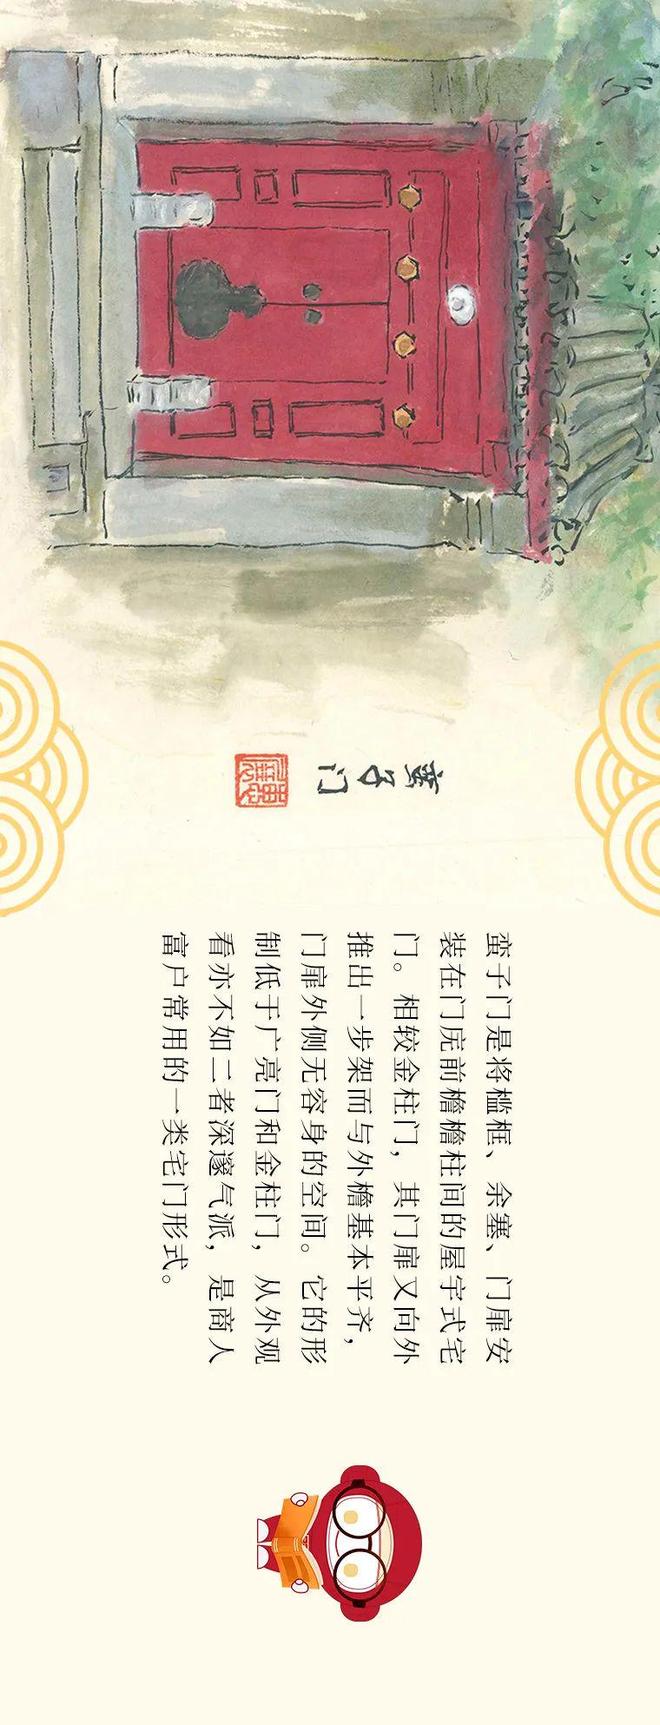 蛮子门
蛮子门是将槛框、余塞、门扉安
装在门庑前檐檐柱间的屋宇式宅
门。相较金柱门，其门扉又向外
推出一步架而与外檐基本平齐，
门扉外侧无容身的空间。它的形
制低于广亮门和金柱门，从外观
看亦不如二者深邃气派，是商人
富户常用的一类宅门形式。